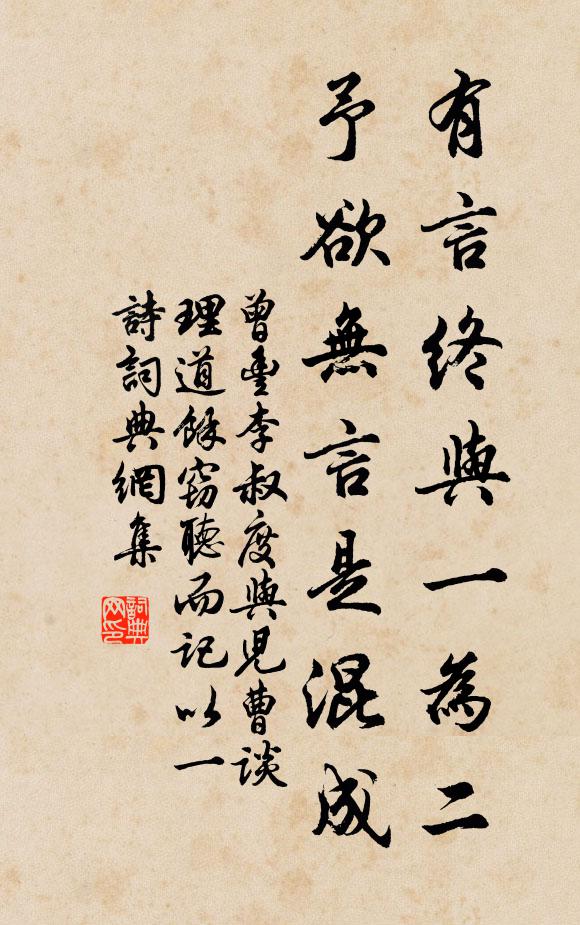 有言終與一為二
予欲無言是混成
曾豐李叔度與児曹談
理道餘窃聽而記以一
詩詞典網集
詞典
网印